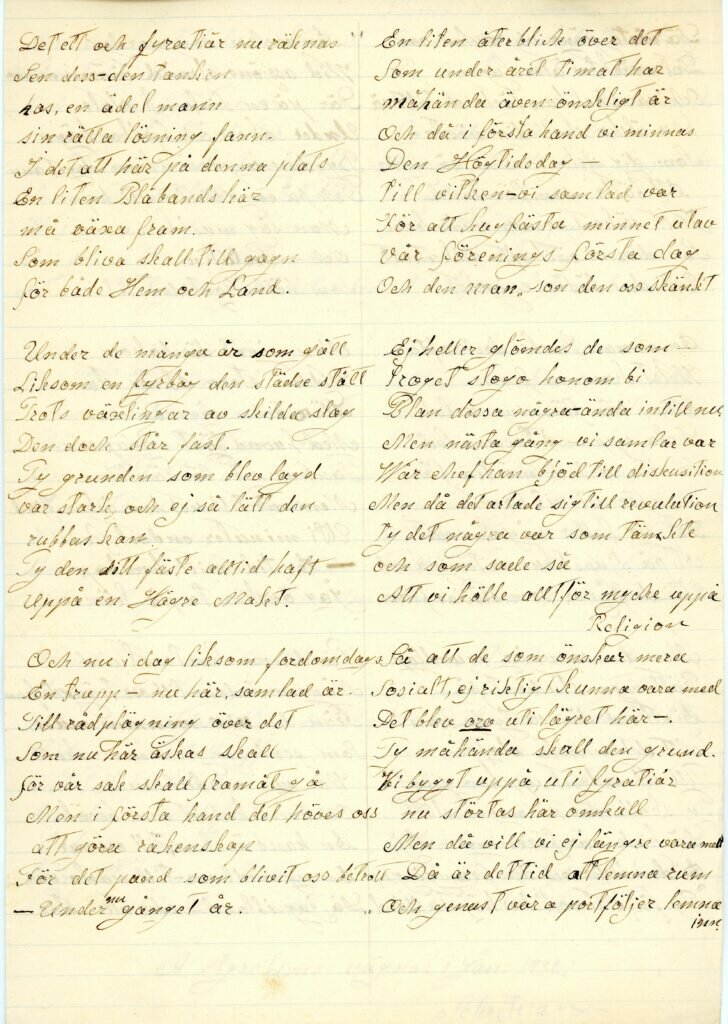 Det ett och fyratiår nu räknas
Sen dess - den tanken
hos, en ädel mann
sin rätta lösning fann.
I det att här på denna plats
En liten Blåbandshär
må växa fram.
Som bliva skall till gagn
för både Hem och Land.
Under de många år som gått
Liksom en fyrbåg den städse stått
Trots växlingar av skilda slag
Den dock står fast.
Ty grunden som blev lagd
var stark, och ej så lätt den
rubbas kan
Ty den sitt fäste alltid haft -
uppå en Högre Makt.
Och nu i dag liksom fordomdags
En trupp - nu här, samlad är.
Till rådplägning över det
Som nu här äskas skall
för vår sak skall framåt gå
Men i första hand det höves oss
att göra räkenskap
För det pund som blivit oss betrott
- Under nu gånget år.
En liten återblick över det
Som under året timat har
måhända även önskligt är
Och då i första hand vi minnas
Den Högtidsdag -
till vilken - vi samlad var
För att hugfästa minnet utav
vår förenings första dag
Och den man, som den oss skänkt
Ej heller glömdes de som -
troget stogo honom bi
Blan dessa några - ända intill nu,
Men nästa gång vi samlar var
Wår chef han bjöd till diskusition
Men då det artade sig till revulution
Ty det några var som tänkte
och som sade så
Att vi hölle alltför mycke uppå
Religion
Så att de som önskar mera
Sosialt, ej riktigt kunna vara med
Det blev oro uti lägret här -.
Ty måhända skall den grund.
Vi byggt uppå, uti fyratiår
nu störtas här omkull
Men då vill vi ej längre vara med
Då är det tid att lemna rum
Och genast våra portföljer lemna
inn.